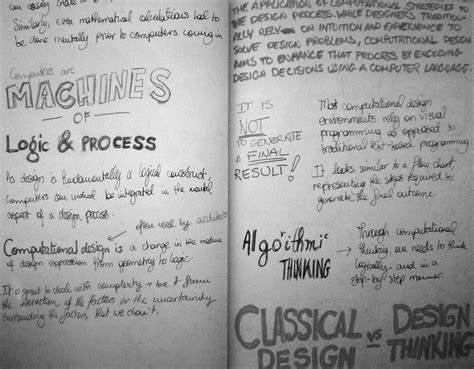 can easily
Similarly, even mathematical calculations had to
be done mentally prior to computers coming in
Computers are
MACHINES
OF
LOGIC & PROCESS
As design is fundamentally a logical construct,
computers can indeed be integrated in the mental
aspect of a design process.
often used by architects
Computational design is a change in the medium
of design expression from geometry to logic.
It is great to deal with complexity → be it from
the interaction of the factors or the uncertainty
surrounding the factors that we don't.
THE APPLICATION OF COMPUTATIONAL STRATEGIES TO
THE DESIGN PROCESS. WHILE DESIGNERS TRADITION-
ALLY RELY ON INTUITION AND EXPERIENCE TO
SOLVE DESIGN PROBLEMS, COMPUTATIONAL DESIGN
AIMS TO ENHANCE THAT PROCESS BY ENCODING
DESIGN DECISIONS USING A COMPUTER LANGUAGE.
IT IS
NOT
TO GENERATE
A FINAL
RESULT!
Most computational design
environments rely on visual
programming as opposed to
traditional text-based programming
It looks similar to a flow chart,
representing the steps required to
generate the final outcome.
Algorithmic
THINKING
→ Through computational
thinking, we need to think
logically and in a
step-by-step manner.
CLASSICAL
DESIGN
vs
DESIGN
THINKING